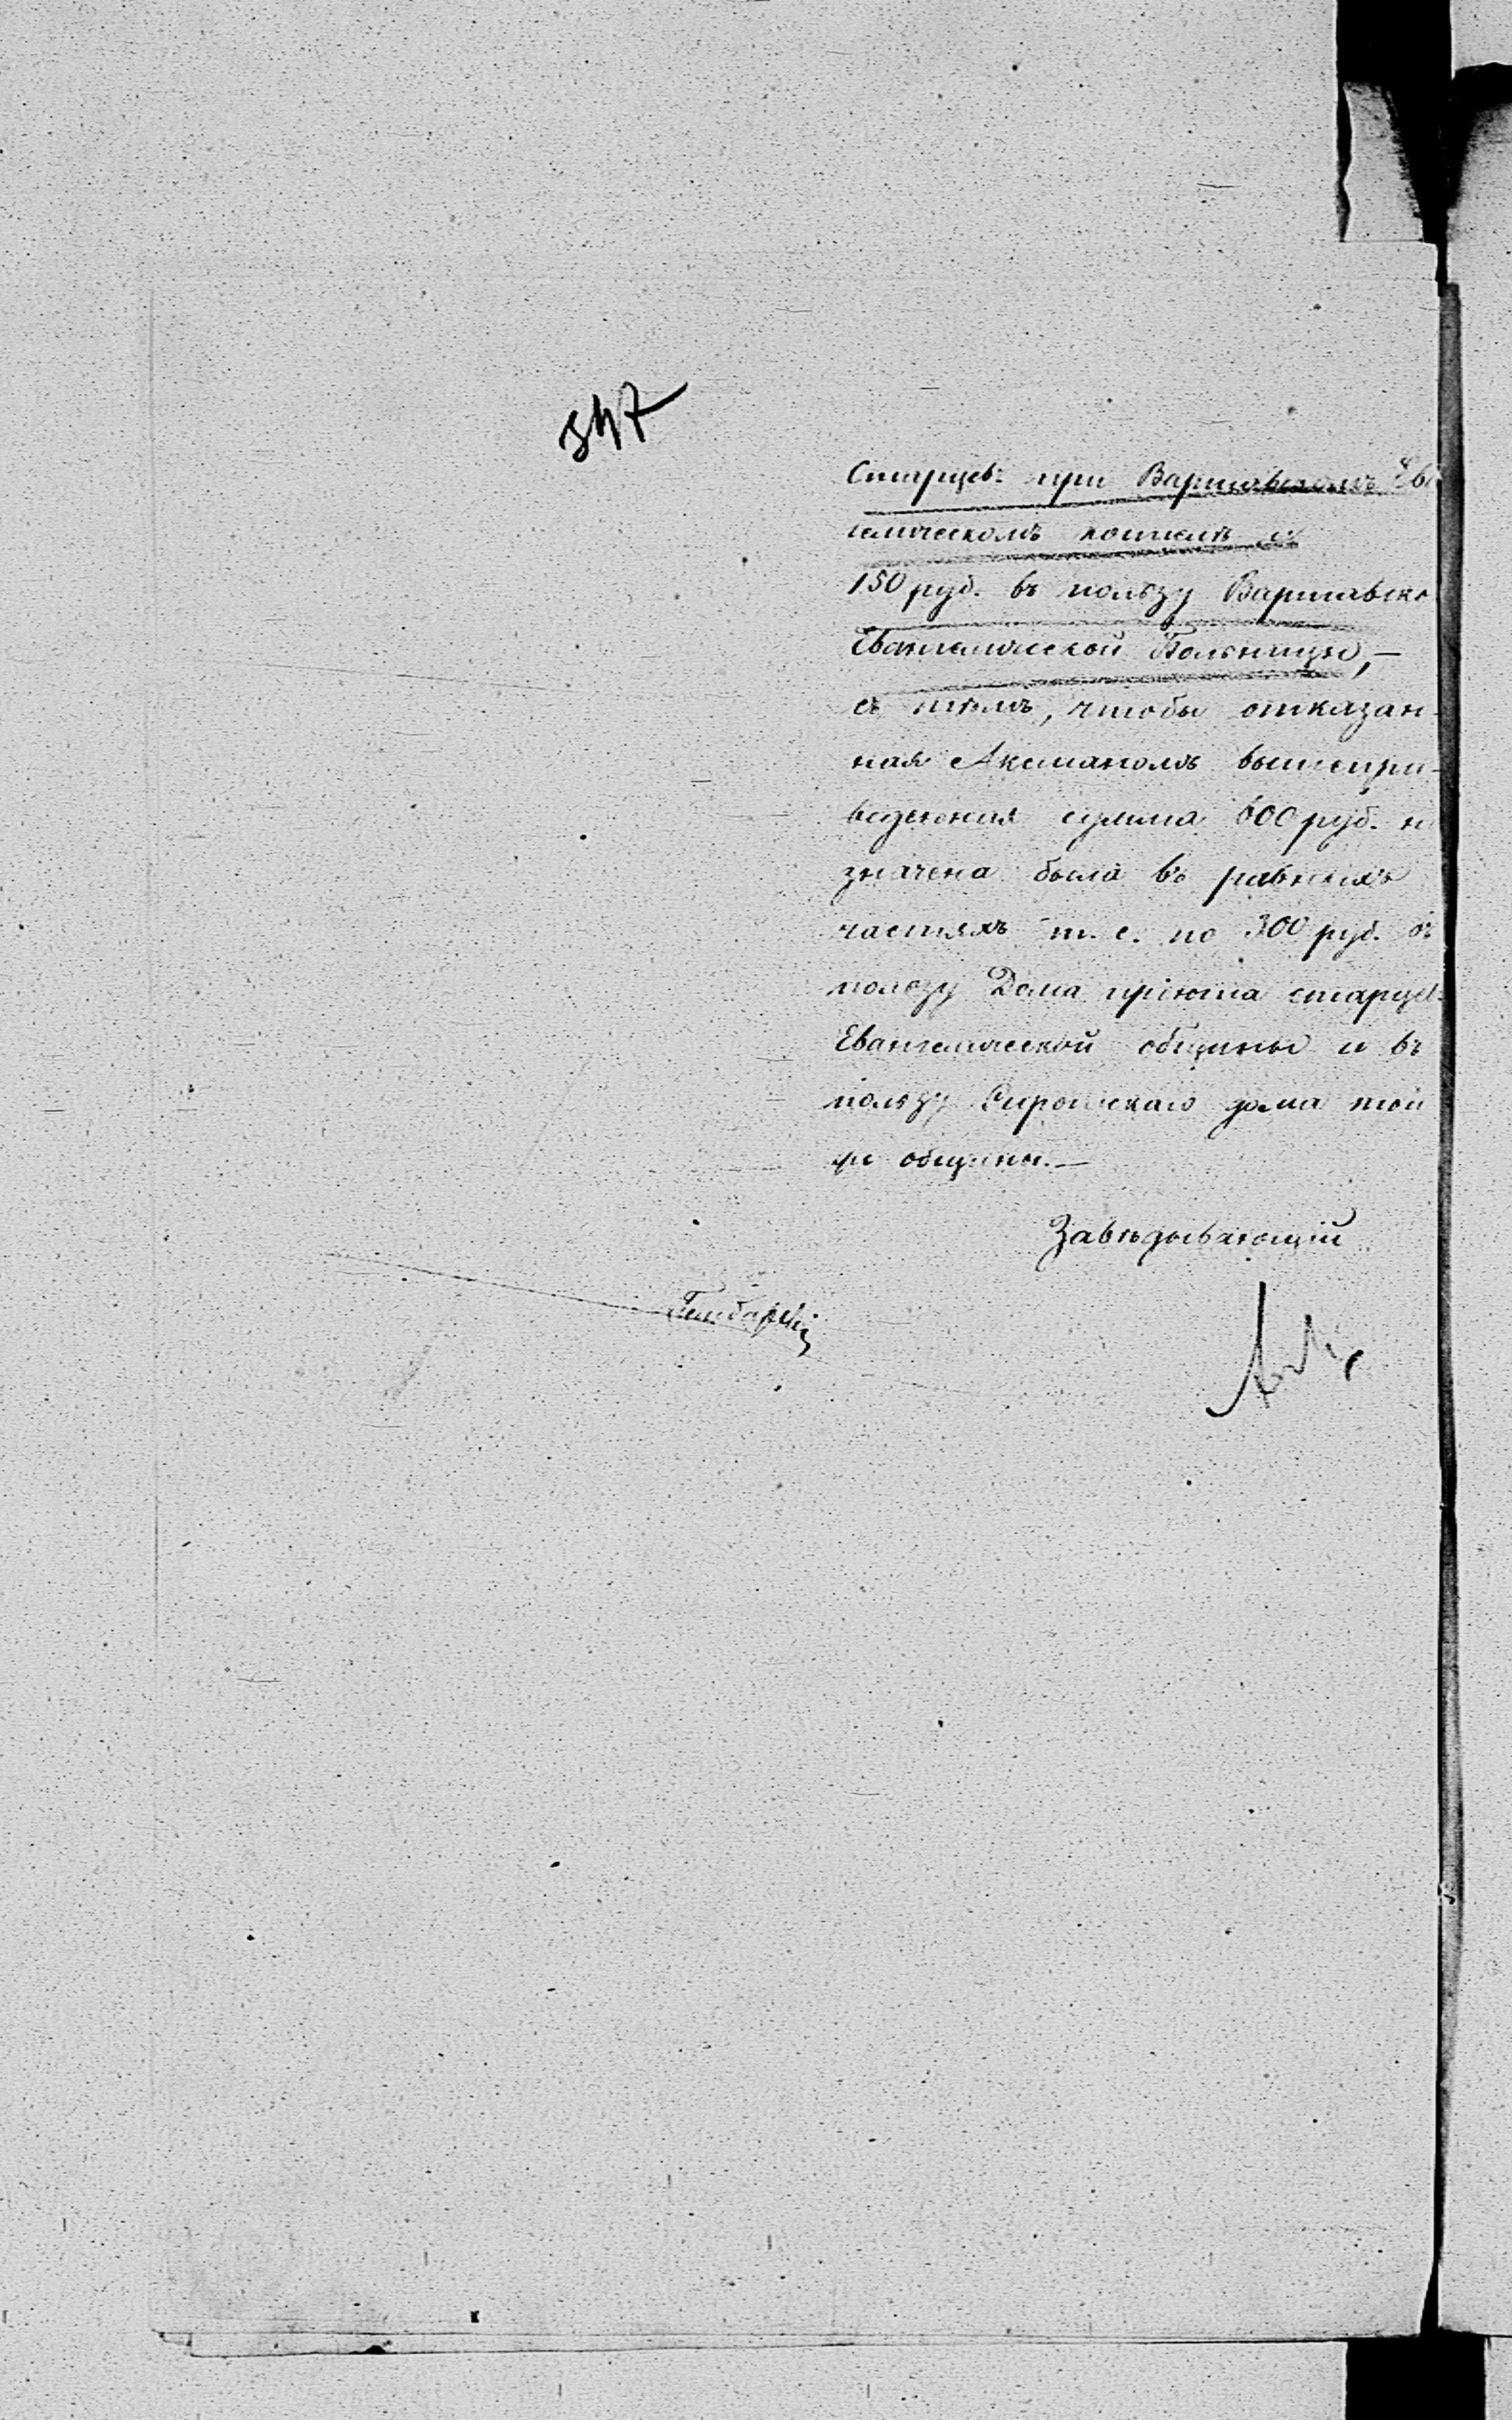 347
Старцевъ при Варшавскомъ Ева
гелическомъ костелѣ и
150 руб. въ пользу Варшавско
Евангелической Больницы, —
съ тѣмъ, чтобы отказан-
ная Аксманомъ вышепри-
веденная сумма 600 руб. н
значена была въ равныхъ
частяхъ т. е. по 300 руб. въ
пользу Дома пріюта старцев
Евангелической общины и въ
пользу Сиротскаго дома той
же общины. —
Завѣдывающій